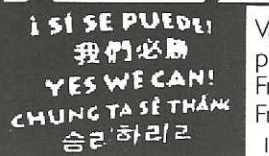 ¡SÍ SE PUEDE!
我們必勝
YES WE CAN!
CHUNG TA SẼ THẮNG
승리하리라
V
p
Fr
Fr
I